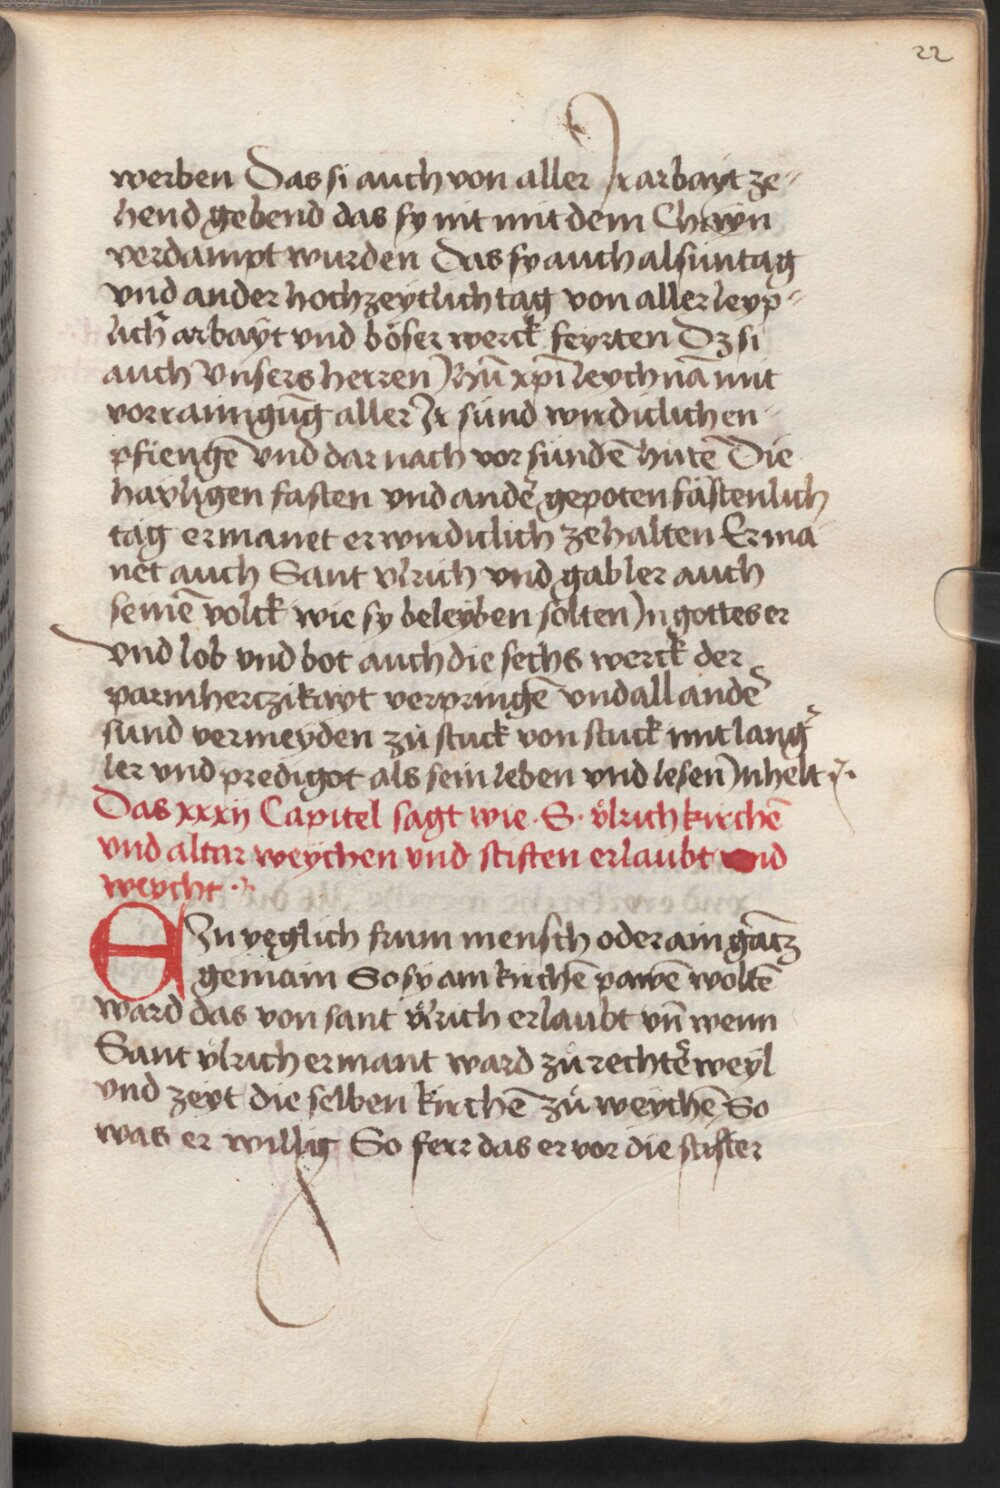 22
werben Das si auch von aller Ir arbayt ze-
hend gebend das sy nit mit dem Chayn
verdampt wurden Das sy auch al suntag
vnd ander hochzeytlich tag von aller leyp-
lich̄ arbayt vnd böser werck feyrten Dz si
auch vnsers herren Jhū xp̄i leychnā mit
vorrainigūg aller Ir sünd wirdiclich en-
pfiengē vnd dar nach vor sundē hutē Die
hayligen fasten vnd andē gepoten fastenlich
tag ermanet er wirdiclich ze halten Er ma
net auch Sant vlrich vnd gab ler auch
seinē volck wie sy beleyben solten In gottes er
vnd lob vnd bot auch die sechs werck der
parmherczikayt verpringē vnd all andē
sund vermeyden zů stuck von stuck mit lanḡ
ler vnd predigot als sein leben vnd lesen Inhelt
Das xxxij Capitel sagt wie · S · vͦlrich kirchē
vnd altar weychen vnd stiften erlaubt vnd
weycht
Ain yeglich frum mensch oder ain gātz
gemain So sy ain kirchē pawē woltē
ward das von sant vͦlrich erlaubt vn̄ wenn
Sant vͦlrich ermant ward zů rechtē weyl
vnd zeyt die selben kirchē zů weychē So
was er willig So ferr das er vor die stifter